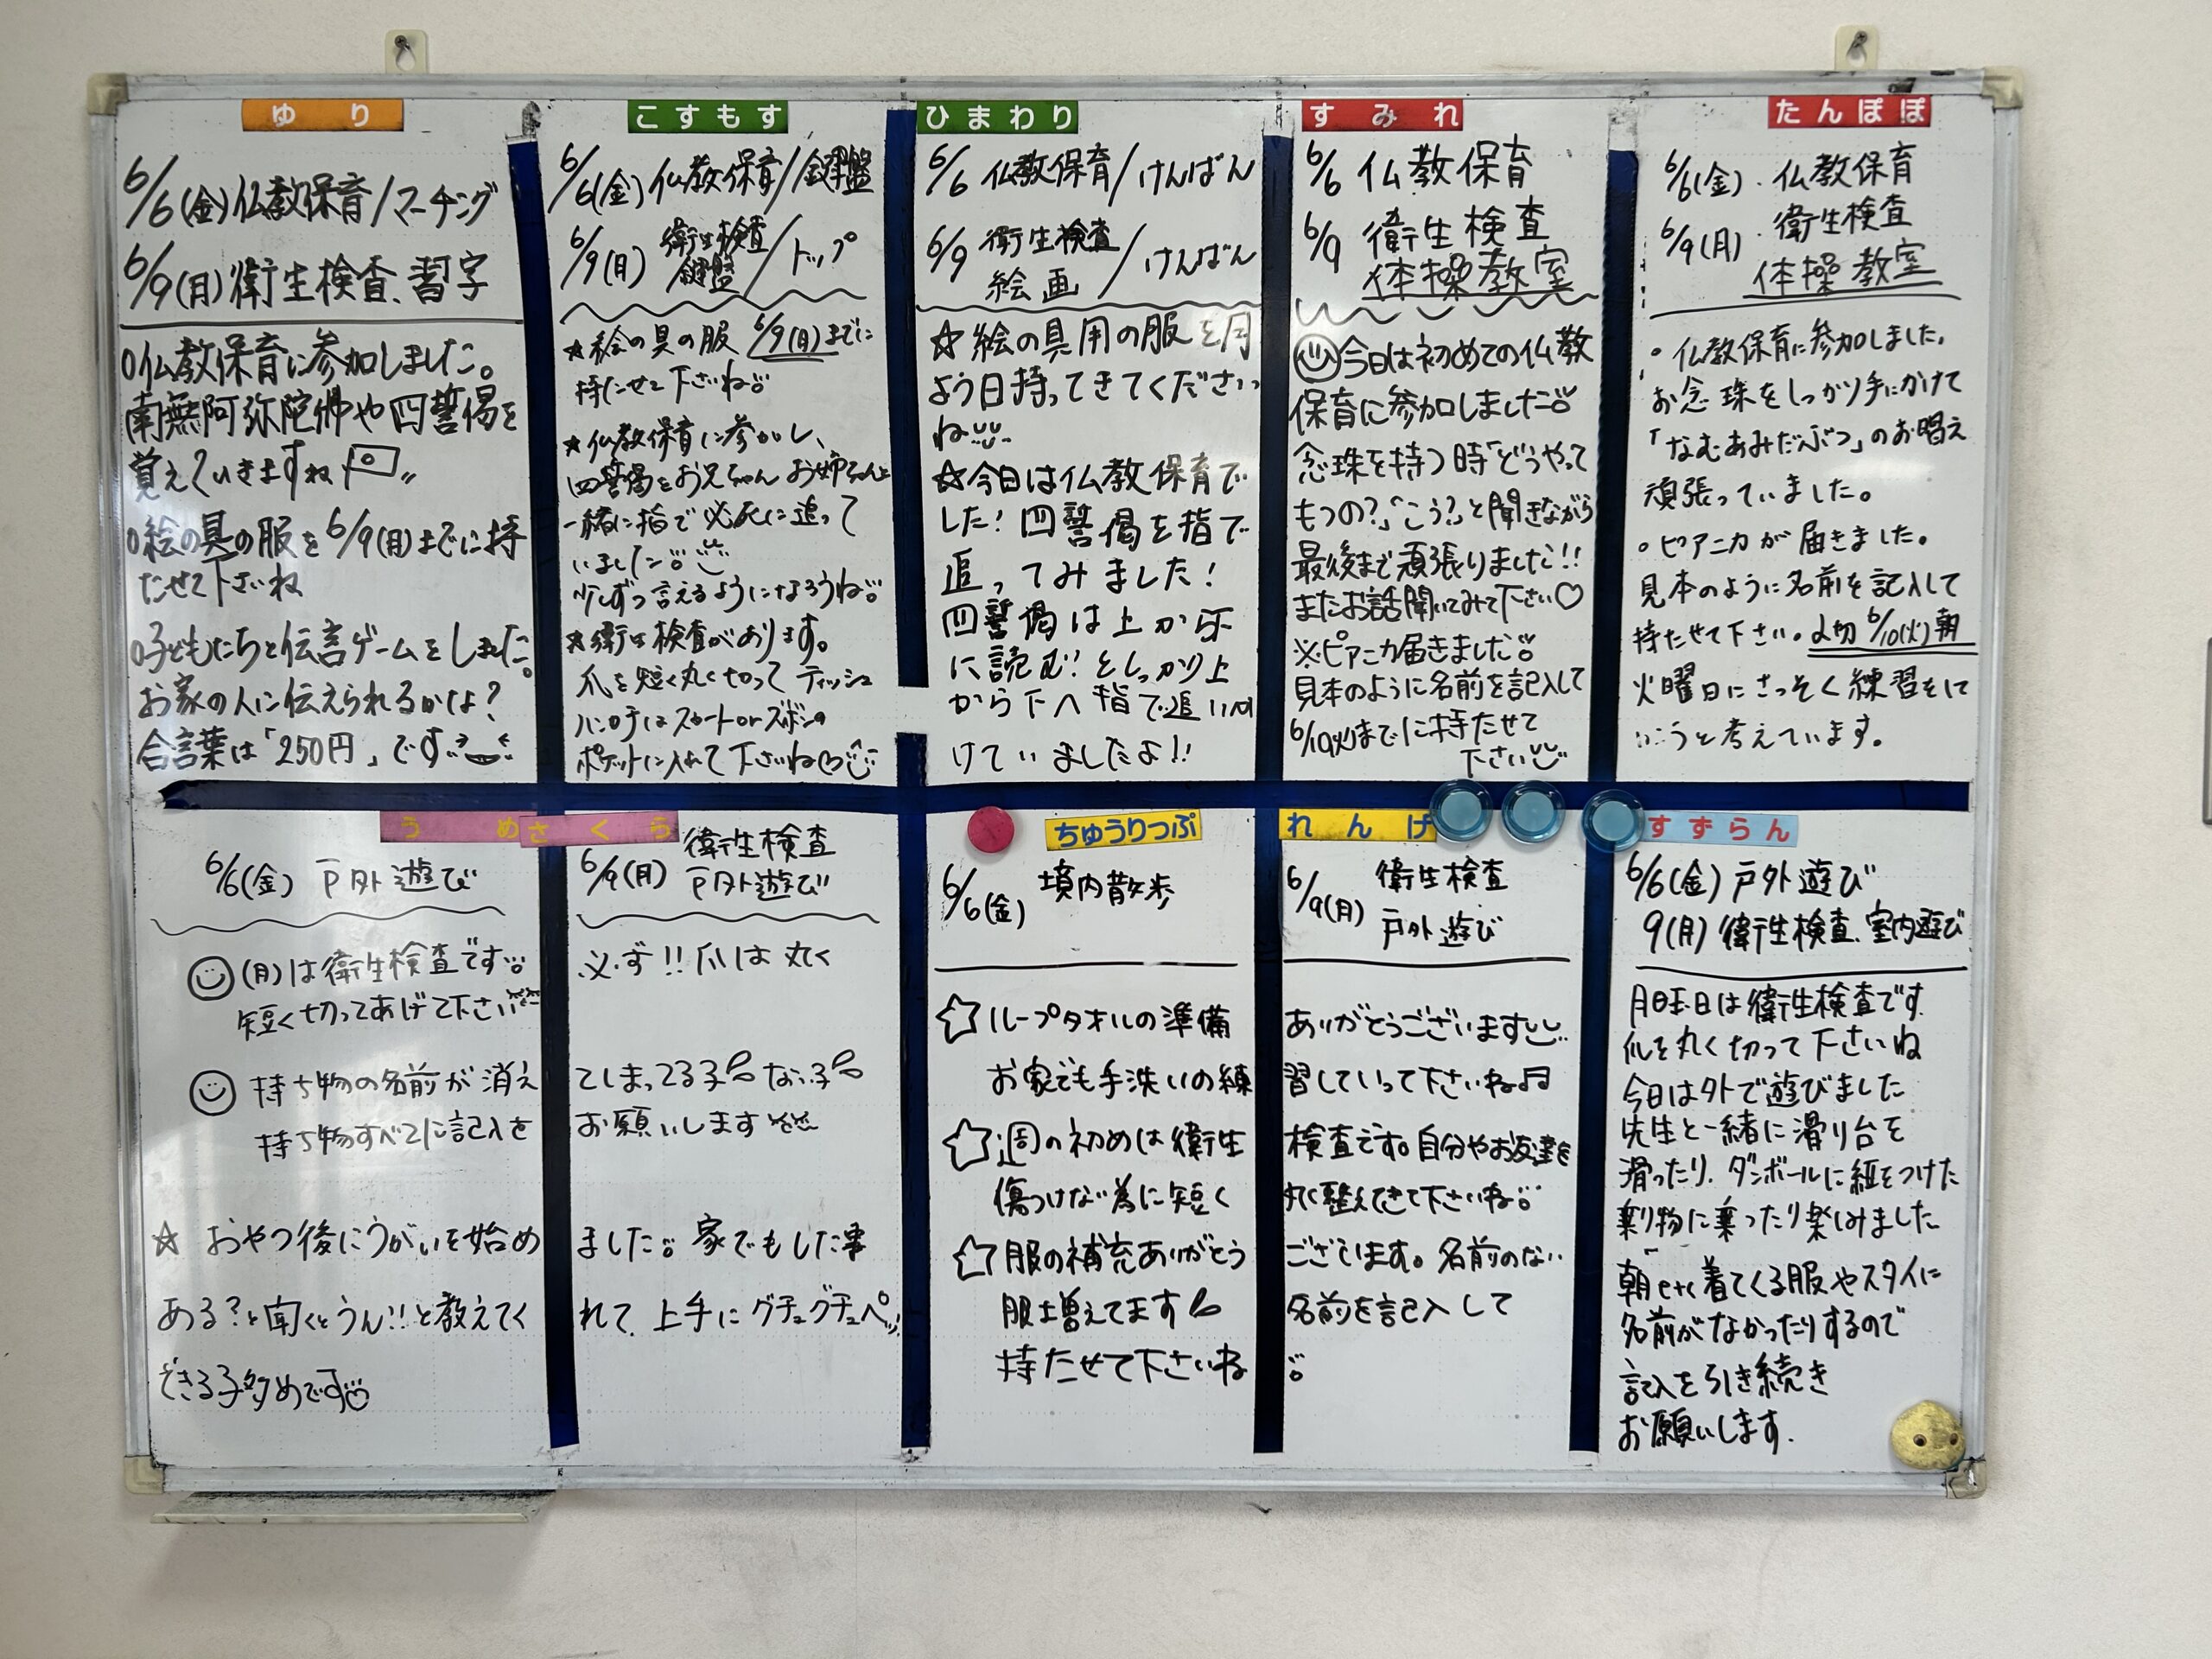 ゆり
6/6(金)仏教保育/マーチング
6/9(月)衛生検査、習字
○仏教保育に参加しました。
南無阿弥陀佛や四誓偈を
覚えていきますね
○絵の具の服を6/9(月)までに持
たせて下さいね
○子どもたちと伝言ゲームをしました。
お家の人に伝えられるかな?
合言葉は「250円」です
こすもす
6/6(金)仏教保育/鍵盤
6/9(月)衛生検査 鍵盤/トップ
★絵の具の服 6/9(月)までに
持たせて下さいね
★仏教保育に参加し、
四誓偈をお兄ちゃんお姉ちゃんと
一緒に指で必死に追って
いました
少しずつ言えるようになろうね
★衛生検査があります。
爪を短く丸く切って ティッシュ
ハンカチはスカートorズボンの
ポケットに入れて下さいね
ひまわり
6/6 仏教保育/けんばん
6/9 衛生検査 絵画/けんばん
☆絵の具用の服を月
よう日持ってきてください
ね
☆今日は仏教保育で
した!四誓偈を指で
追ってみました!
四誓偈は上から下
に読む!としっかり上
から下へ指で追いか
けていましたよ!!
すみれ
6/6 仏教保育
6/9 衛生検査
体操教室
今日は初めての仏教
保育に参加しました
念珠を持つ時「どうやって
もつの?」「こう?」と聞きながら
最後まで頑張りました!!
またお話聞いてみて下さい♡
※ピアニカ届きました
見本のように名前を記入して
6/10(火)までに持たせて
下さい
たんぽぽ
6/6(金)・仏教保育
6/9(月)・衛生検査
体操教室
・仏教保育に参加しました。
お念珠をしっかり手にかけて
「なむあみだぶつ」のお唱え
頑張っていました。
・ピアニカが届きました。
見本のように名前を記入して
持たせて下さい。〆切6/10(火)朝
火曜日にさっそく練習をして
いこうと考えています。
うめ
さくら
6/6(金) 戸外遊び
6/9(月) 衛生検査
戸外遊び
(月)は衛生検査です 必ず!!爪は丸く
短く切ってあげて下さい
持ち物の名前が消えてしまってる子 ない子
持ち物すべてに記入をお願いします
☆ おやつ後にうがいを始めました。家でもした事
ある?と聞くとうん!!と教えてくれて、上手にグチュグチュペッ!
できる子多めです
ちゅうりっぷ
れんげ
6/6(金) 境内散歩
6/9(月) 衛生検査
戸外遊び
☆ループタオルの準備ありがとうございます
お家でも手洗いの練習していって下さいね♫
☆週の初めは衛生検査です。自分やお友達を
傷つけない為に短く丸く整えてきて下さいね
☆服の補充ありがとうございます。名前のない
服も増えてます 名前を記入して
持たせて下さいね
すずらん
6/6(金)戸外遊び
9(月)衛生検査、室内遊び
月曜日は衛生検査です。
爪を丸く切って下さいね
今日は外で遊びました
先生と一緒に滑り台を
滑ったり、ダンボールに紐をつけた
乗り物に乗ったり楽しみました
朝etc着てくる服やスタイに
名前がなかったりするので
記入を引き続き
お願いします.